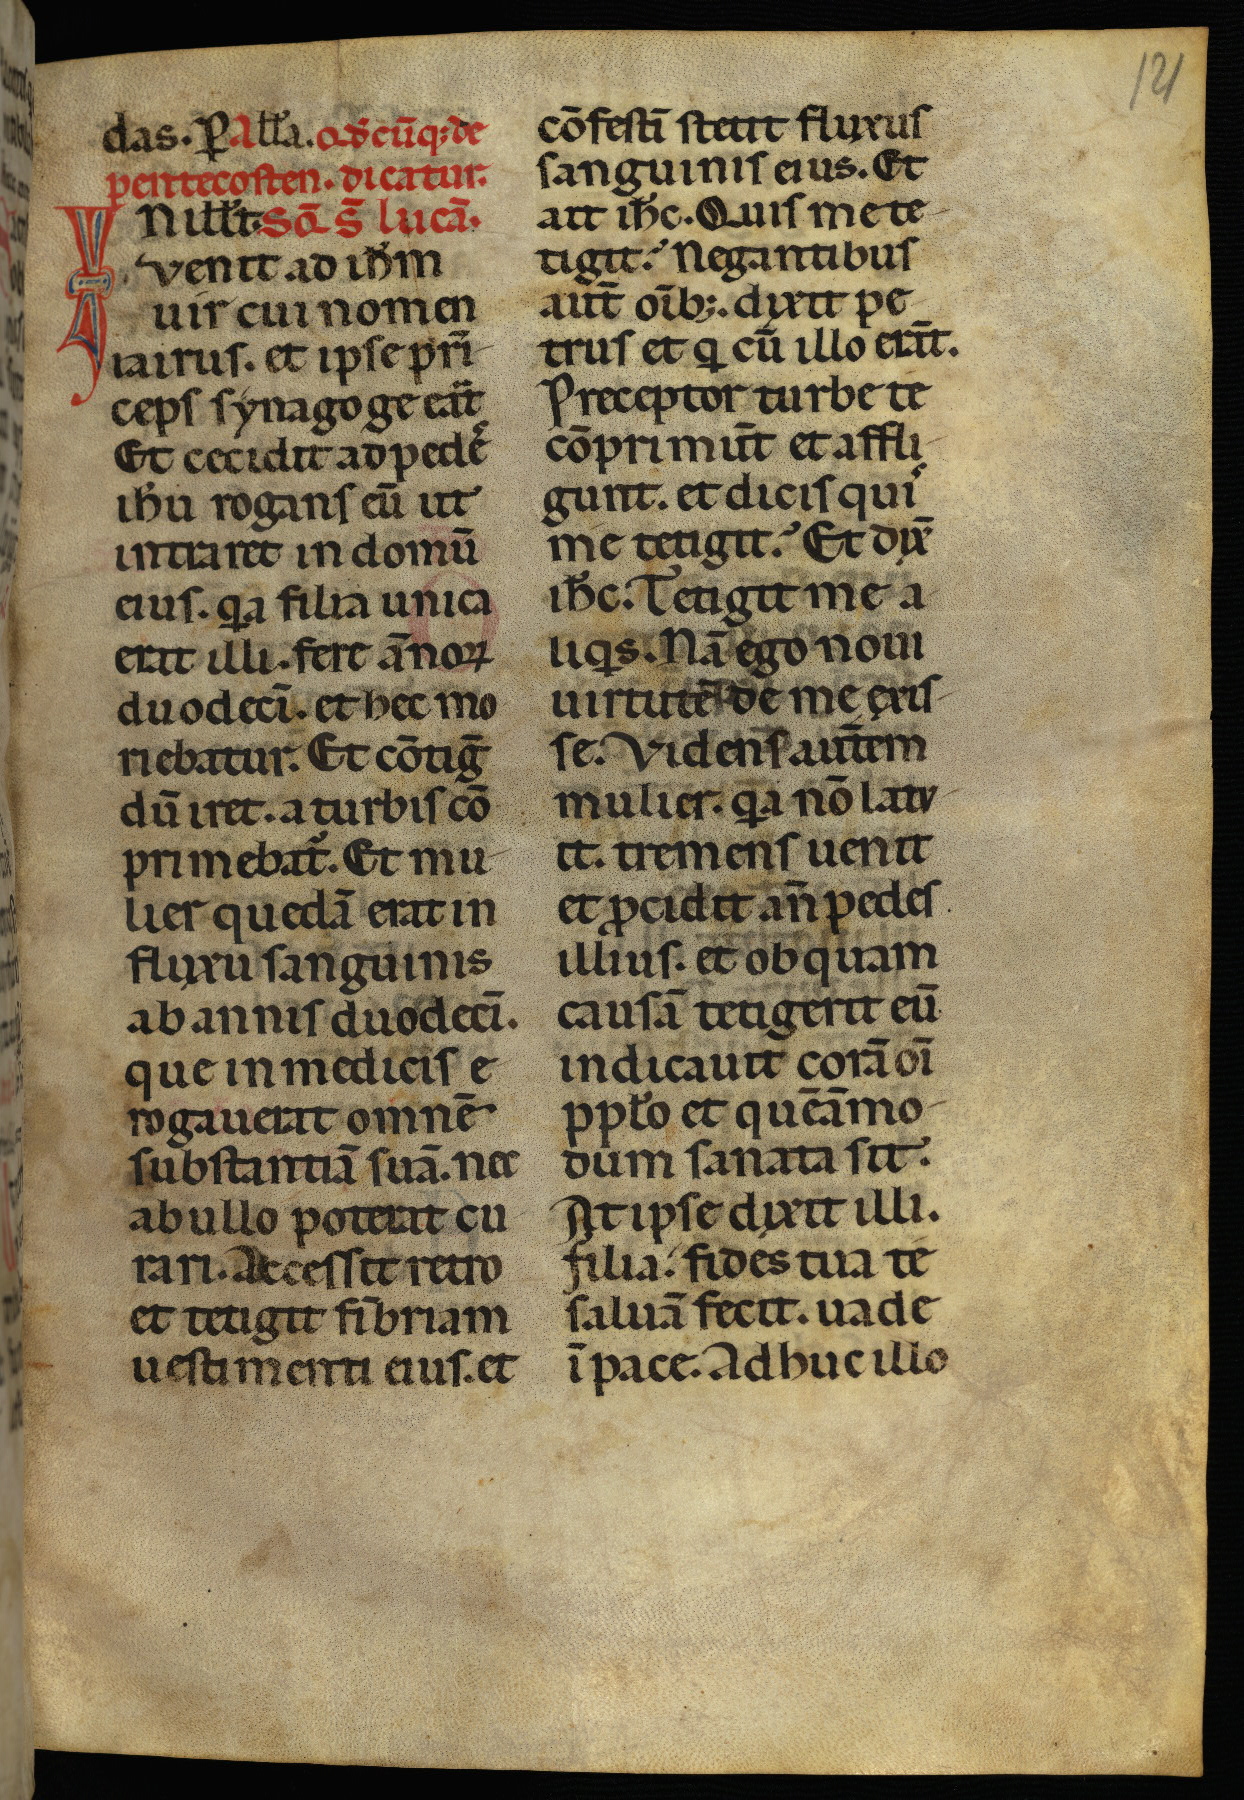 121
das. P Alla. qd̅ cūq; de
pentecosten. dicatur.
IN illt̅. sc̄d s̄ lucā.
venit ad ih̅m
uir cui nomen
iairus. et ipse prī
ceps synagoge erat̄
Et cecidit ad pedes
ih̅u rogans eū ut
intraret in domū
eius. qa filia unica
erat illi. fere ānoꝝ
duodecī. et hec mo
riebatur. Et cōtig̅
dū iret. a turbis cō
primebat̄. Et mu
lier quedā erat in
fluxu sanguinis
ab annis duodecī.
que in medicis e
rogauerat omnē
substantiā suā. nec
ab ullo poterat cu
rari. Accessit retro
et tetigit fībriam
uestimenti eius. et
cōfestī stetit fluxus
sanguinis eius. Et
ait ih̅c. Quis me te
tigit? Negantibus
aut̄ oīb;. dixit pe
trus et q cū illo erāt.
Preceptor turbe te
cōprimūt et affli
gunt. et dicis quis
me tetigit? Et dix̄
ih̅c. Tetigit me a
liqs. Nā ego noui
uirtutē de me exis
se. Videns autem
mulier. qa nō latu
it. tremens uenit
et ꝓcidit an̄ pedes
illius. et ob quam
causā tetigerit eū
indicauit corā oī
pplo et quēāmo
dum sanata sit.
At ipse dixit illi.
filia. fides tua te
saluā fecit. uade
ī pace. Adhuc illo